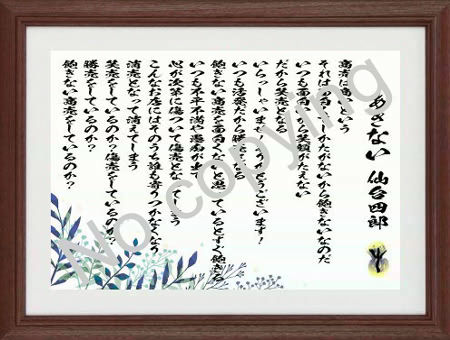 あきない 仙台四郎
商売は商いという
それは面白くてしかたがないから飽きないなのだ
いつも面白いから笑顔がたえない
だから笑売となる
いらっしゃいませ！ありがとうございます！
いつも活発だから勝売になる
飽きない商売を面白くないと思っているとすぐ飽きる
いつも不平不満や愚痴が出て
心が次第に傷ついて傷売となってしまう
こんなお店にはそのうち誰も寄りつかなくなり
消売となって消えてしまう
笑売をしているのか？傷売をしているのか？
勝売をしているのか？
飽きない商売をしているのか？
No copying